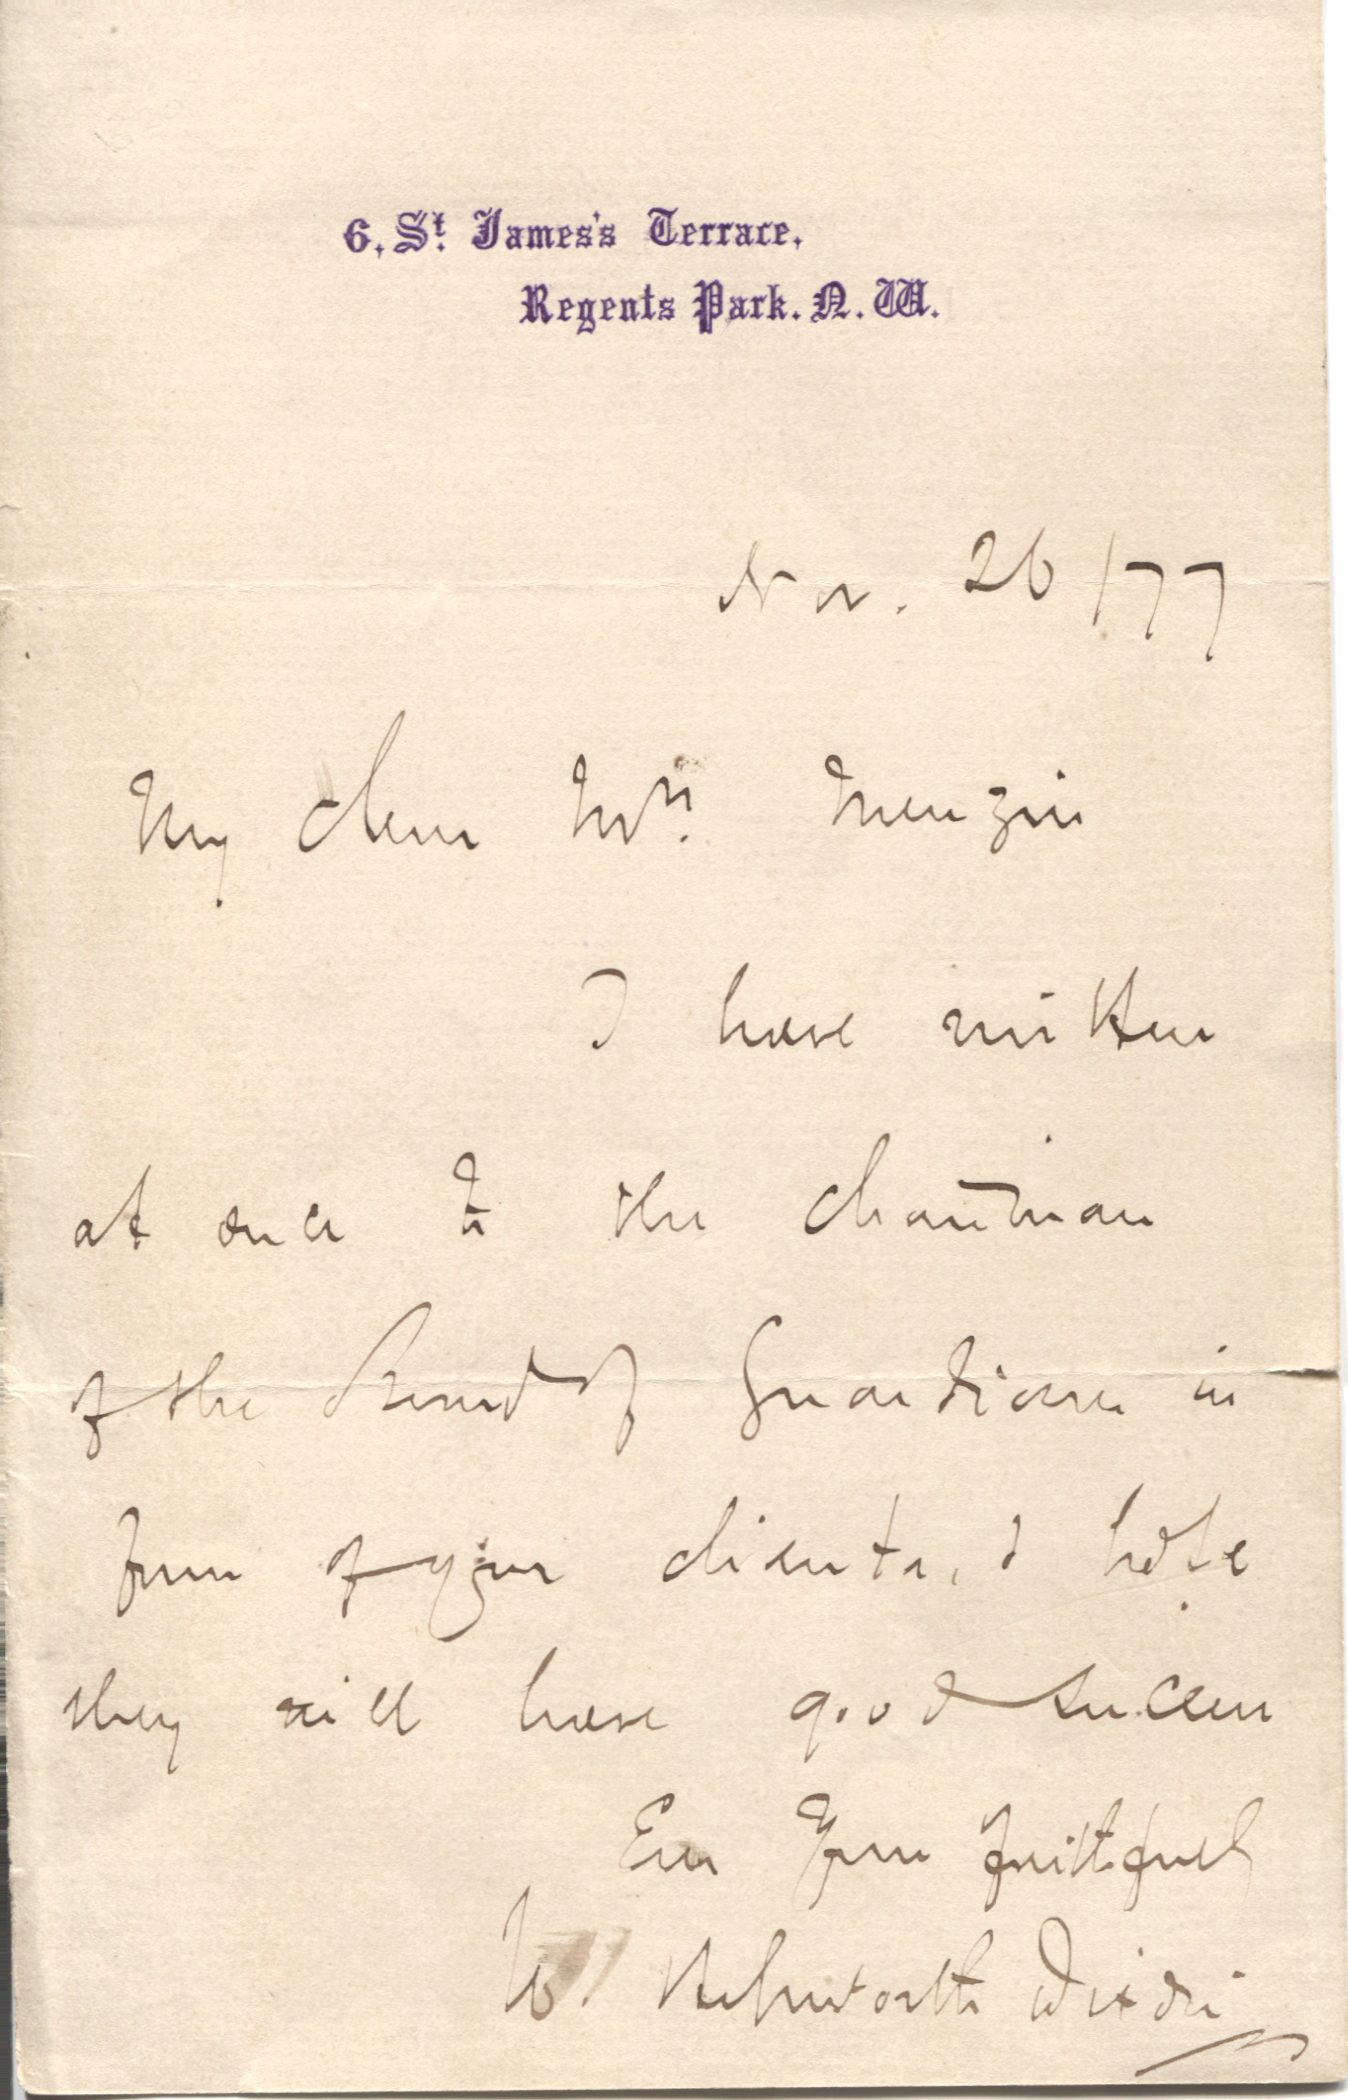 6, St. James's Terrace,
Regents Park. N. W.
Nov. 26/77
My dear Mrs. Menzies
I have written
at once to the Chairman
of the Board of Guardians in
favour of your clients, I hope
they will have good success
Ever Yours faithfully
W. Hepworth Dixon